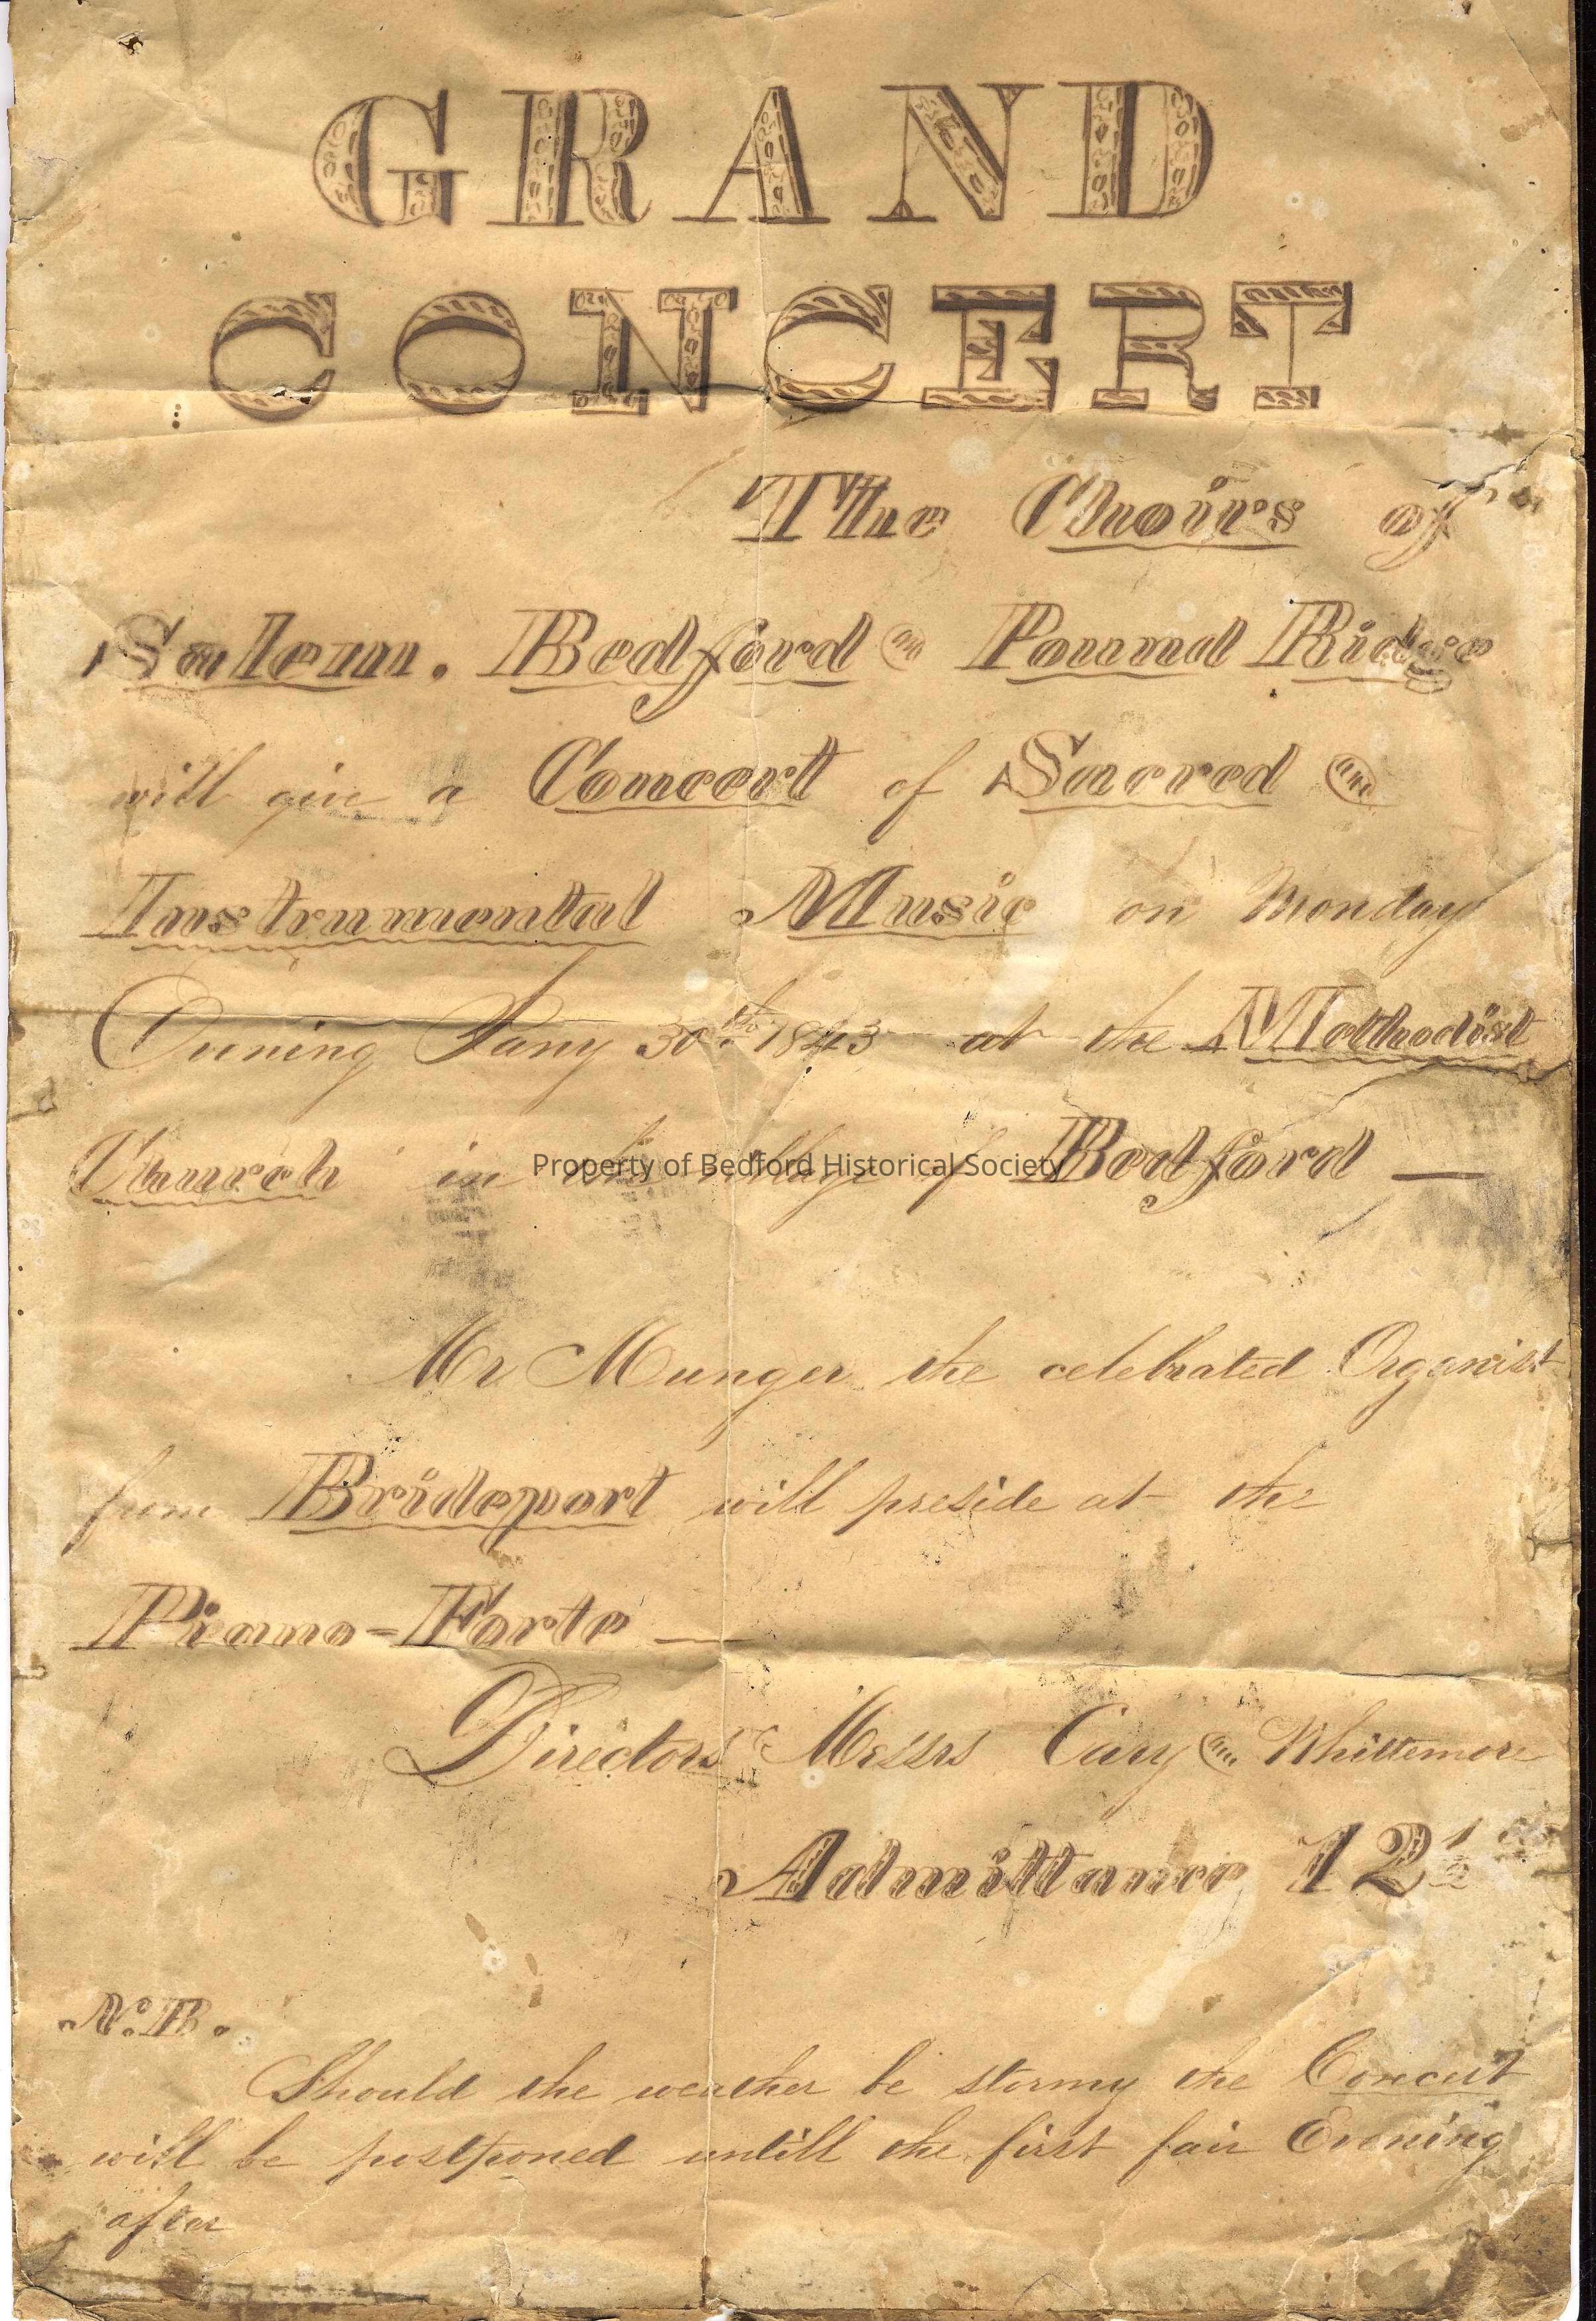 GRAND
CONCERT
The Choirs of
Salem. Bedford and Pound Ridge
will give a Concert of Sacred and
Instrumental Music on Monday
Evening Jany 30th 1843 at the Methodist
Church in the village of Bedford —
Property of Bedford Historical Society
Mr Munger the celebrated Organist
from Brideport will preside at the
Piano-Forte —
Directors Messrs Cary and Whittemore
Admittance 12 1/2
N.B.
Should the weather be stormy the Concert
will be postponed untill the first fair Evening
after